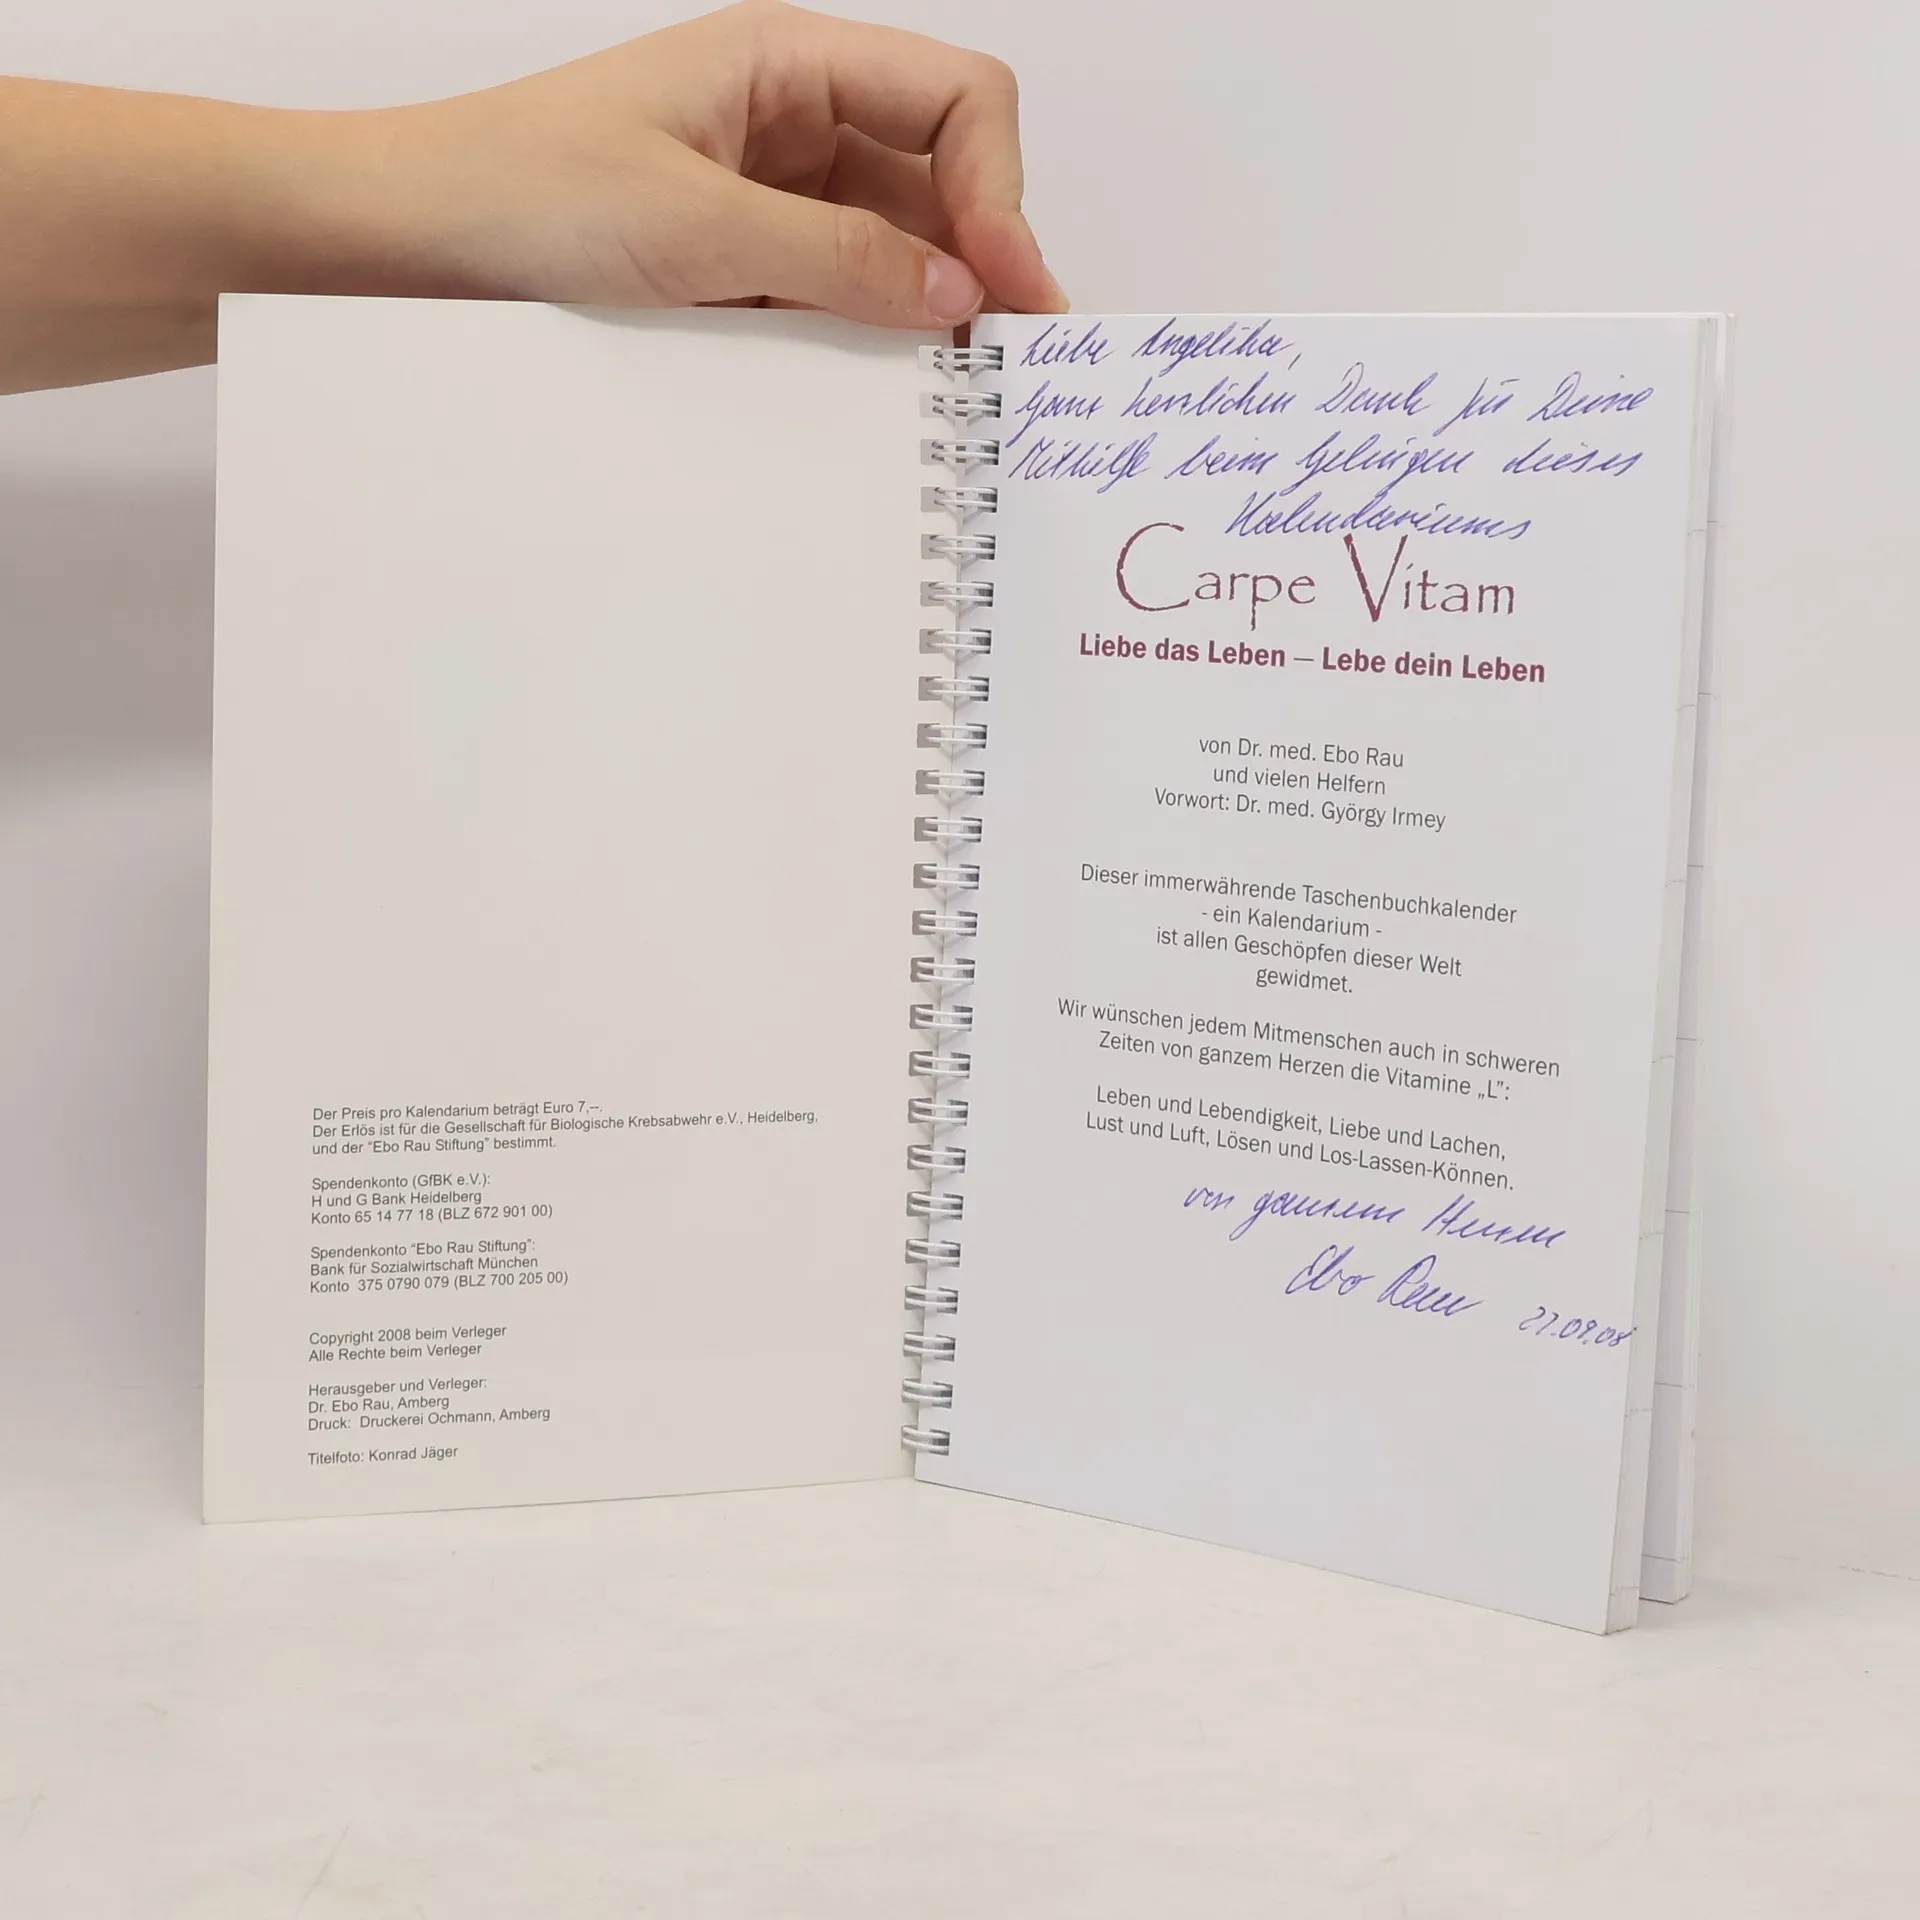 Der Preis pro Kalendarium beträgt Euro 7,--.
Der Erlös ist für die Gesellschaft für Biologische Krebsabwehr e.V., Heidelberg,
und der "Ebo Rau Stiftung" bestimmt.
Spendenkonto (GfBK e.V.):
H und G Bank Heidelberg
Konto 65 14 77 18 (BLZ 672 901 00)
Spendenkonto "Ebo Rau Stiftung":
Bank für Sozialwirtschaft München
Konto 375 0790 079 (BLZ 700 205 00)
Copyright 2008 beim Verleger
Alle Rechte beim Verleger
Herausgeber und Verleger:
Dr. Ebo Rau, Amberg
Druck: Druckerei Ochmann, Amberg
Titelfoto: Konrad Jäger
Liebe Angelika,
ganz herzlichen Dank für Deine
Mithilfe beim Gelingen dieses
Kalendariums
Carpe Vitam
Liebe das Leben – Lebe dein Leben
von Dr. med. Ebo Rau
und vielen Helfern
Vorwort: Dr. med. György Irmey
Dieser immerwährende Taschenbuchkalender
- ein Kalendarium -
ist allen Geschöpfen dieser Welt
gewidmet.
Wir wünschen jedem Mitmenschen auch in schweren
Zeiten von ganzem Herzen die Vitamine „L":
Leben und Lebendigkeit, Liebe und Lachen,
Lust und Luft, Lösen und Los-Lassen-Können.
von ganzem Herzen
Ebo Rau